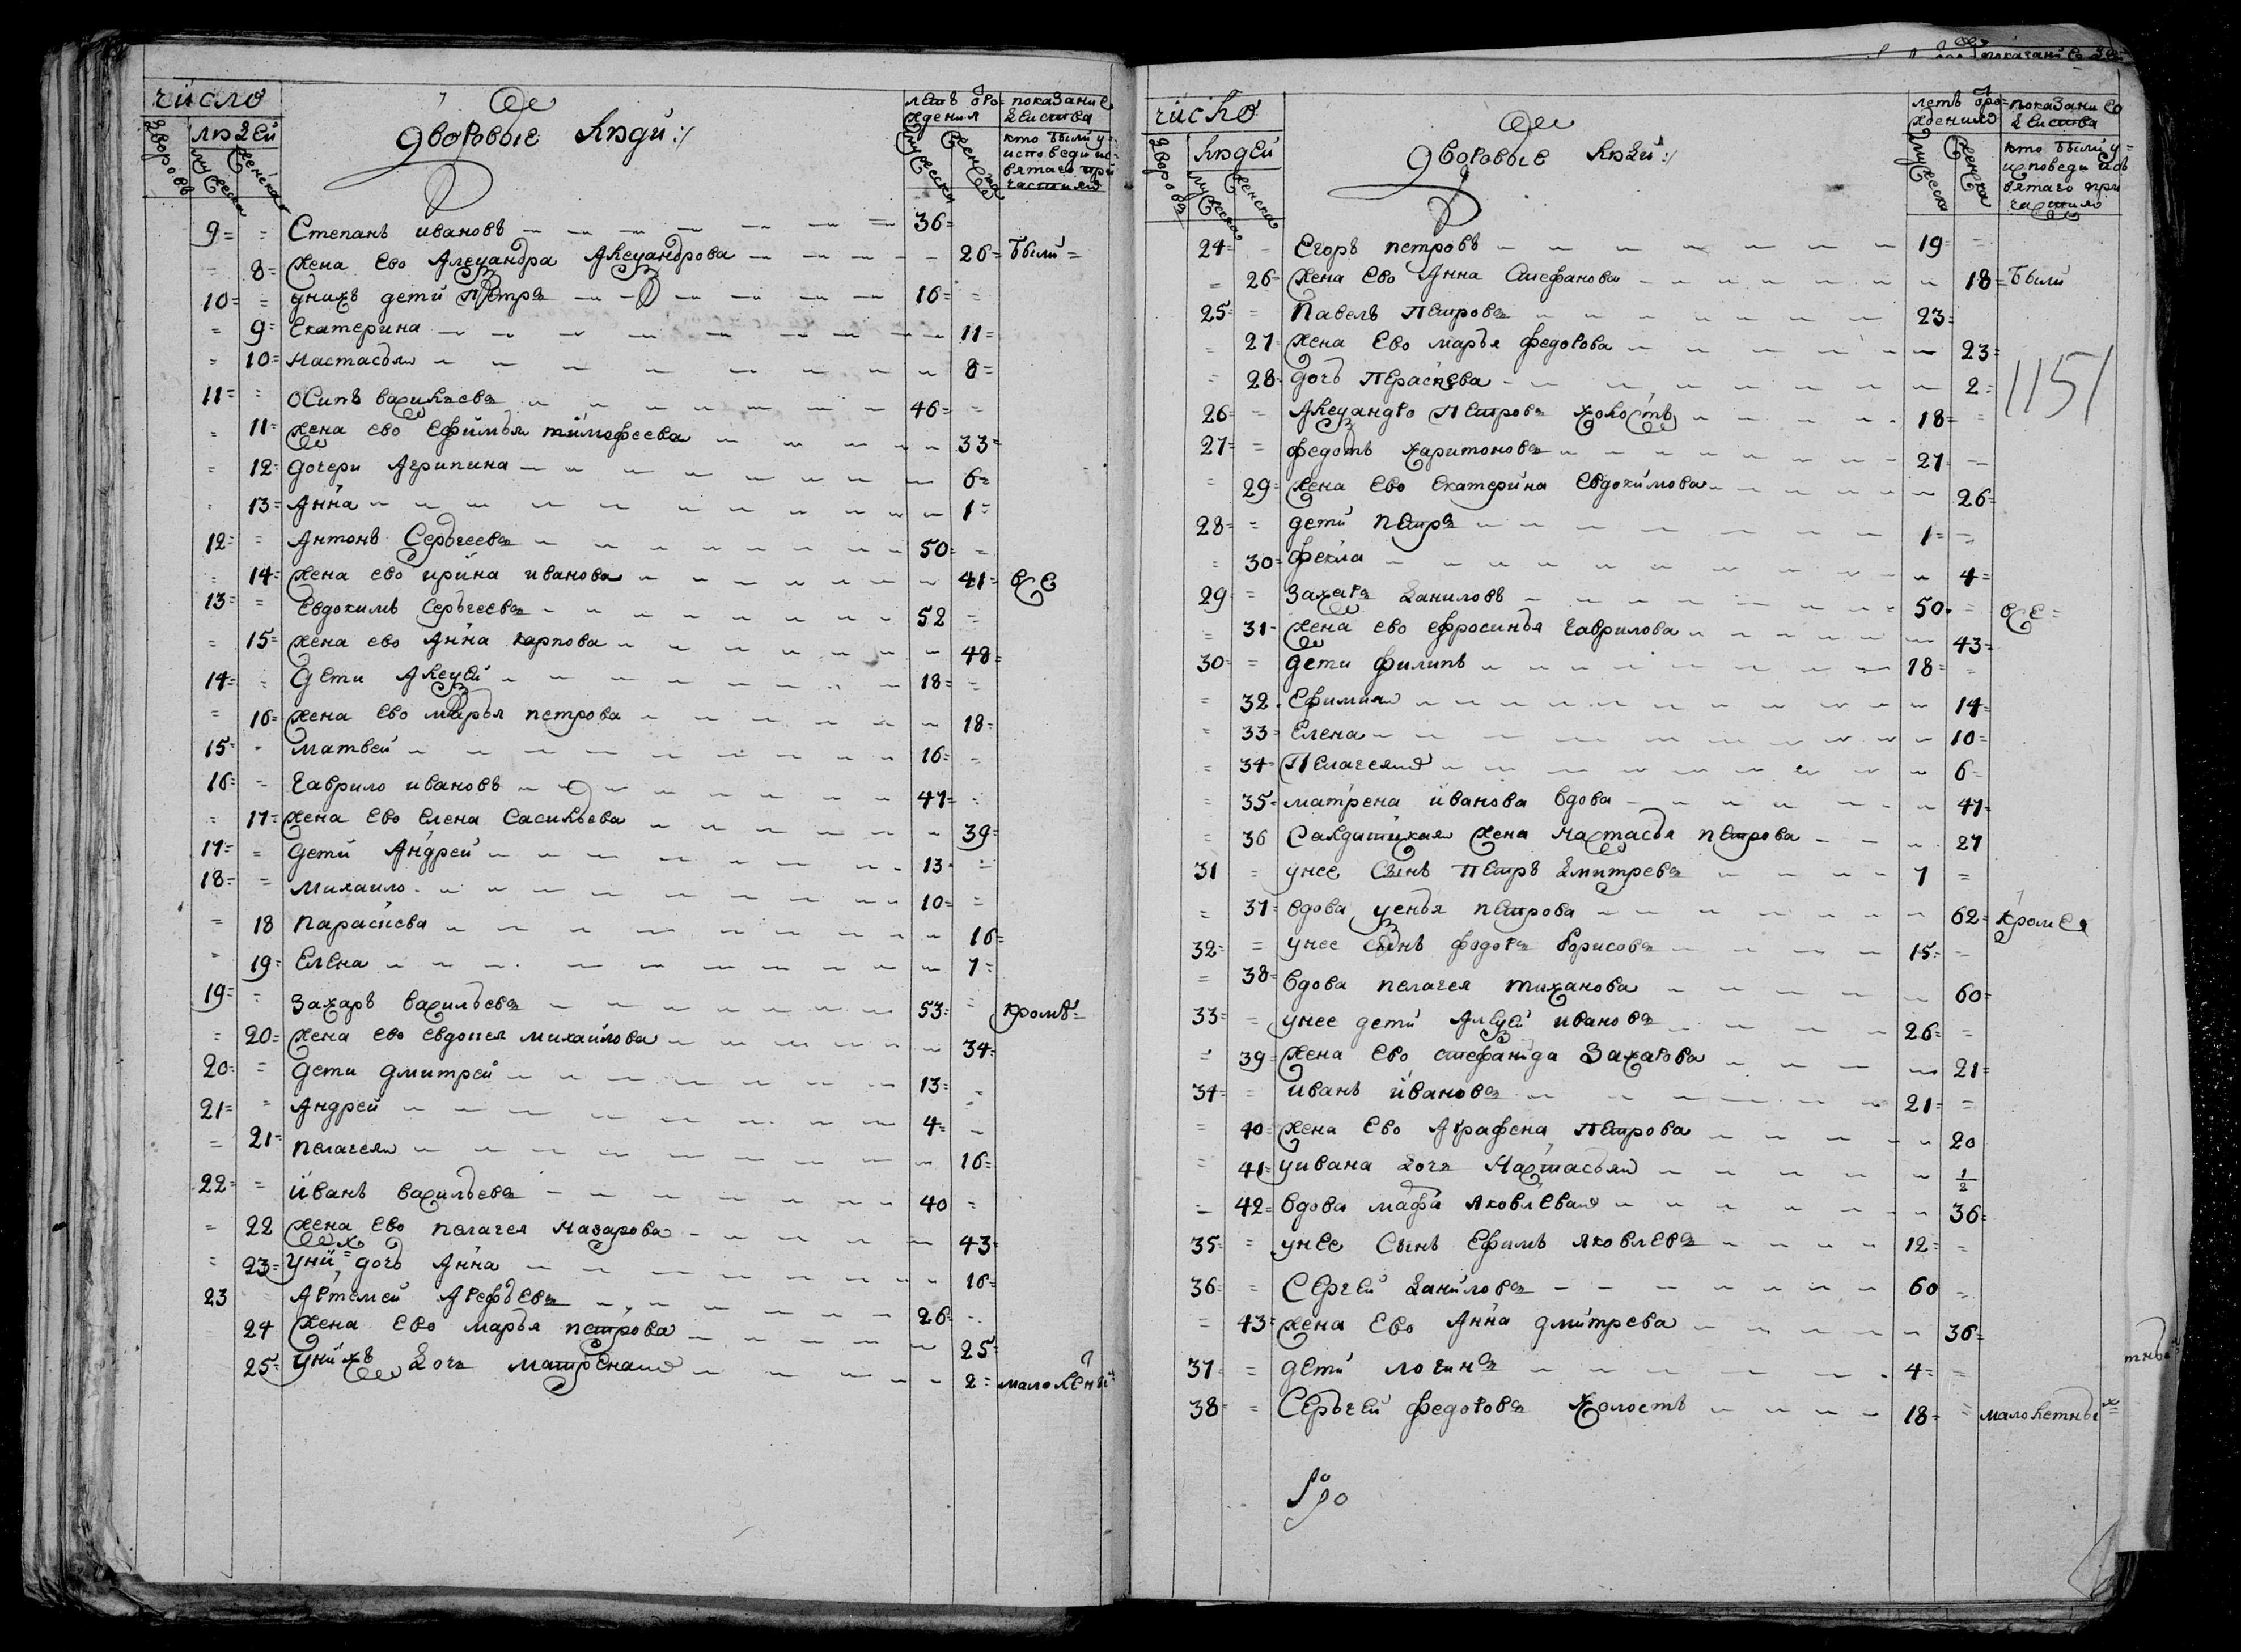 число
дворовъ
людей
мужеска
женска
дворовые люди :/
летъ оро=
ждения
мужеска
женска
показание
действа
кто были у=
исповеди ис=
вятаго при
частия
9= = Степанъ ивановъ 36=
= 8= жена ево Алеѯандра Алеѯандрова 26= были=
10= = унихъ дети петръ 16= =
= 9= Екатерина 11=
= 10= настасья 8=
11= = Осипъ василевъ 46= =
= 11= жена ево Ефимья тимофеева 33=
= 12= дочери Агрипина 6=
= 13= Анна 1=
12= = Антонъ Серьгеевъ 50= =
= 14= жена ево ирина иванова 41= все
13= = Евдокимъ серьгеевъ 52 =
= 15= жена ево Анна карпова 48=
14= = дети Алеѯей 18= =
= 16= жена Ево марья петрова 18=
15= = матвей 16= =
16= = гаврило ивановъ 47= =
= 17= жена Ево елена васильева 39=
17= = дети Андрей 13= =
18= = михаило 10= =
= 18 параскева 16=
= 19= Елена 7=
19= = захаръ васильевъ 53= = кромѣ=
= 20= жена ево евдокея михаилова 34=
20= = дети дмитрей 13= =
21= = Андрей 4= =
= 21= пелагея 16=
22= = иванъ васильевъ 40 =
= 22 жена Ево пелагея назарова 43=
= 23= уних дочь Анна 16=
23 Артемей Арефьевъ 26= =
24 жена Ево марья петрова 25=
25= унихъ дочь матрена 2= малолетны
число
дворовъ
людей
мужеска
женска
дворовые люди :/
летъ оро=
ждения
мужеска
женска
показание
действа
кто были у=
исповеди исъ
вятаго при
частия
24= = Егоръ петровъ 19= =
= 26= жена Ево Анна Стефанова 18= были
25= = павелъ петровъ 23=
= 27 жена Ево марья федорова 23=
1151
= 28= дочь параскева 2=
26= = Алеѯандръ петровъ холостъ 18= =
27= = федотъ харитоновъ 27 =
= 29= жена Ево Екатерина Евдокимова 26=
28= = дети петръ 1= =
= 30= фекла 4=
29= = захаръ даниловъ 50= = все=
= 31= жена ево ефросинья гаврилова 43=
30= = дети филипъ 18= =
= 32= Ефимия 14=
= 33= Елена 10=
= 34= Пелагея 6=
= 35= матрена иванова вдова 47=
= 36 салдатская жена настасья петрова 27
31 = унее сынъ петръ дмитревъ 7 =
= 37= вдова ѯенья петрова 62= кроме
32= = унее сынъ федоръ борисовъ 15= =
= 38= вдова пелагея тиханова 60=
33= = унее дети Алеѯей ивановъ 26= =
= 39= жена Ево стефанида захарова 21=
34= = иванъ ивановъ 21= =
= 40= жена Ево Аграфена петрова 20
= 41= уивана дочь настасья 1/2
= 42= вдова марфа яковлева 36=
35= = унее Сынъ Ефимъ яковлевъ 12= =
36= = Сергей даниловъ 60 =
= 43= жена Ево Анна дмитрева 36=
37= = дети логинъ 4= =
38= = Серьгей федоровъ холостъ 18= = малолетны х=